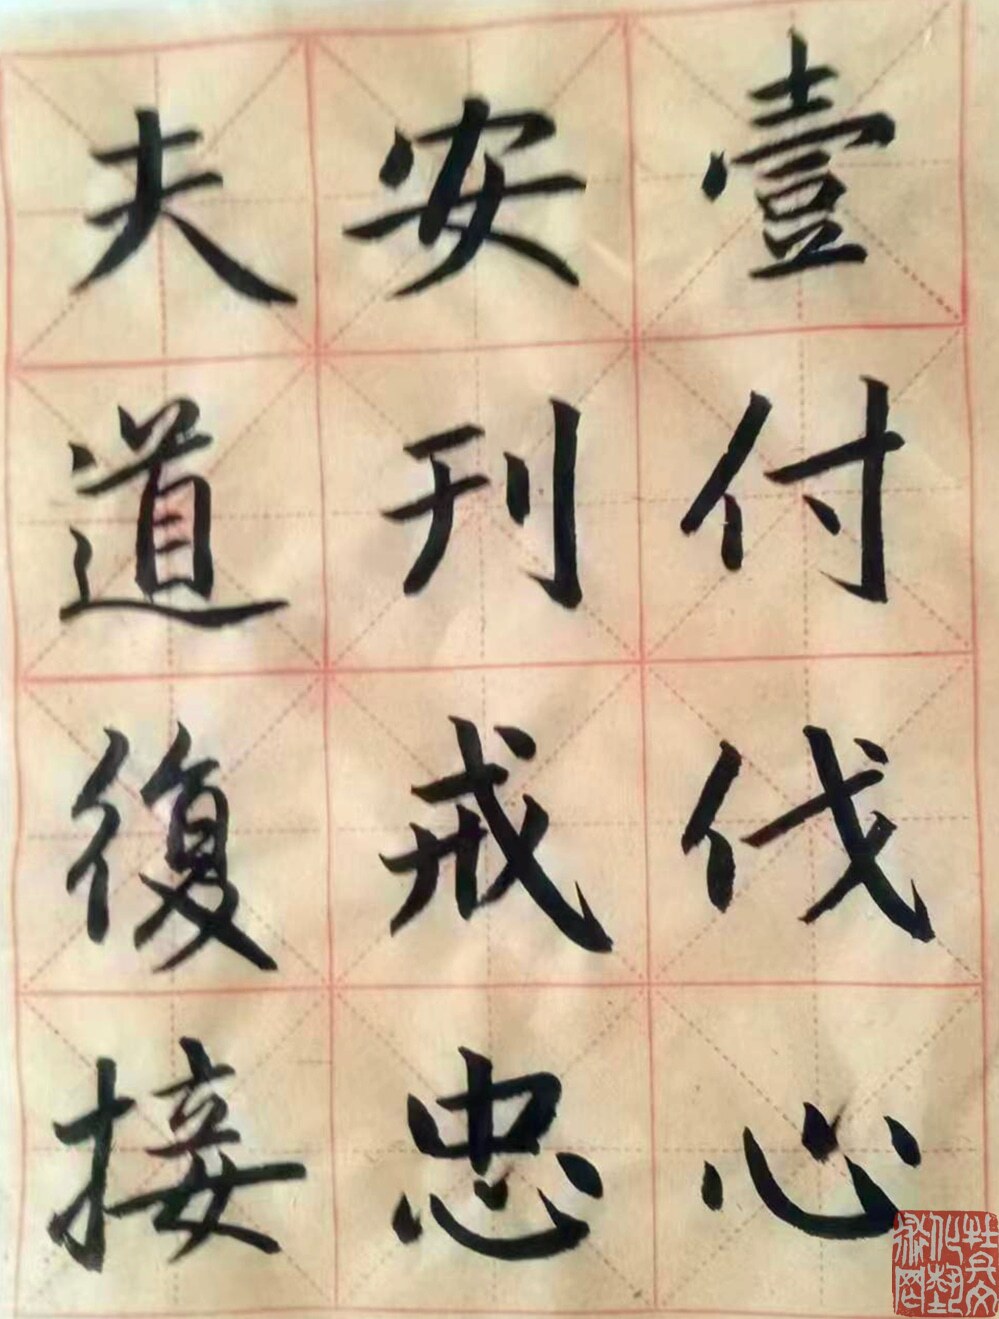 壹付伐心
安刊戒忠
夫道復接